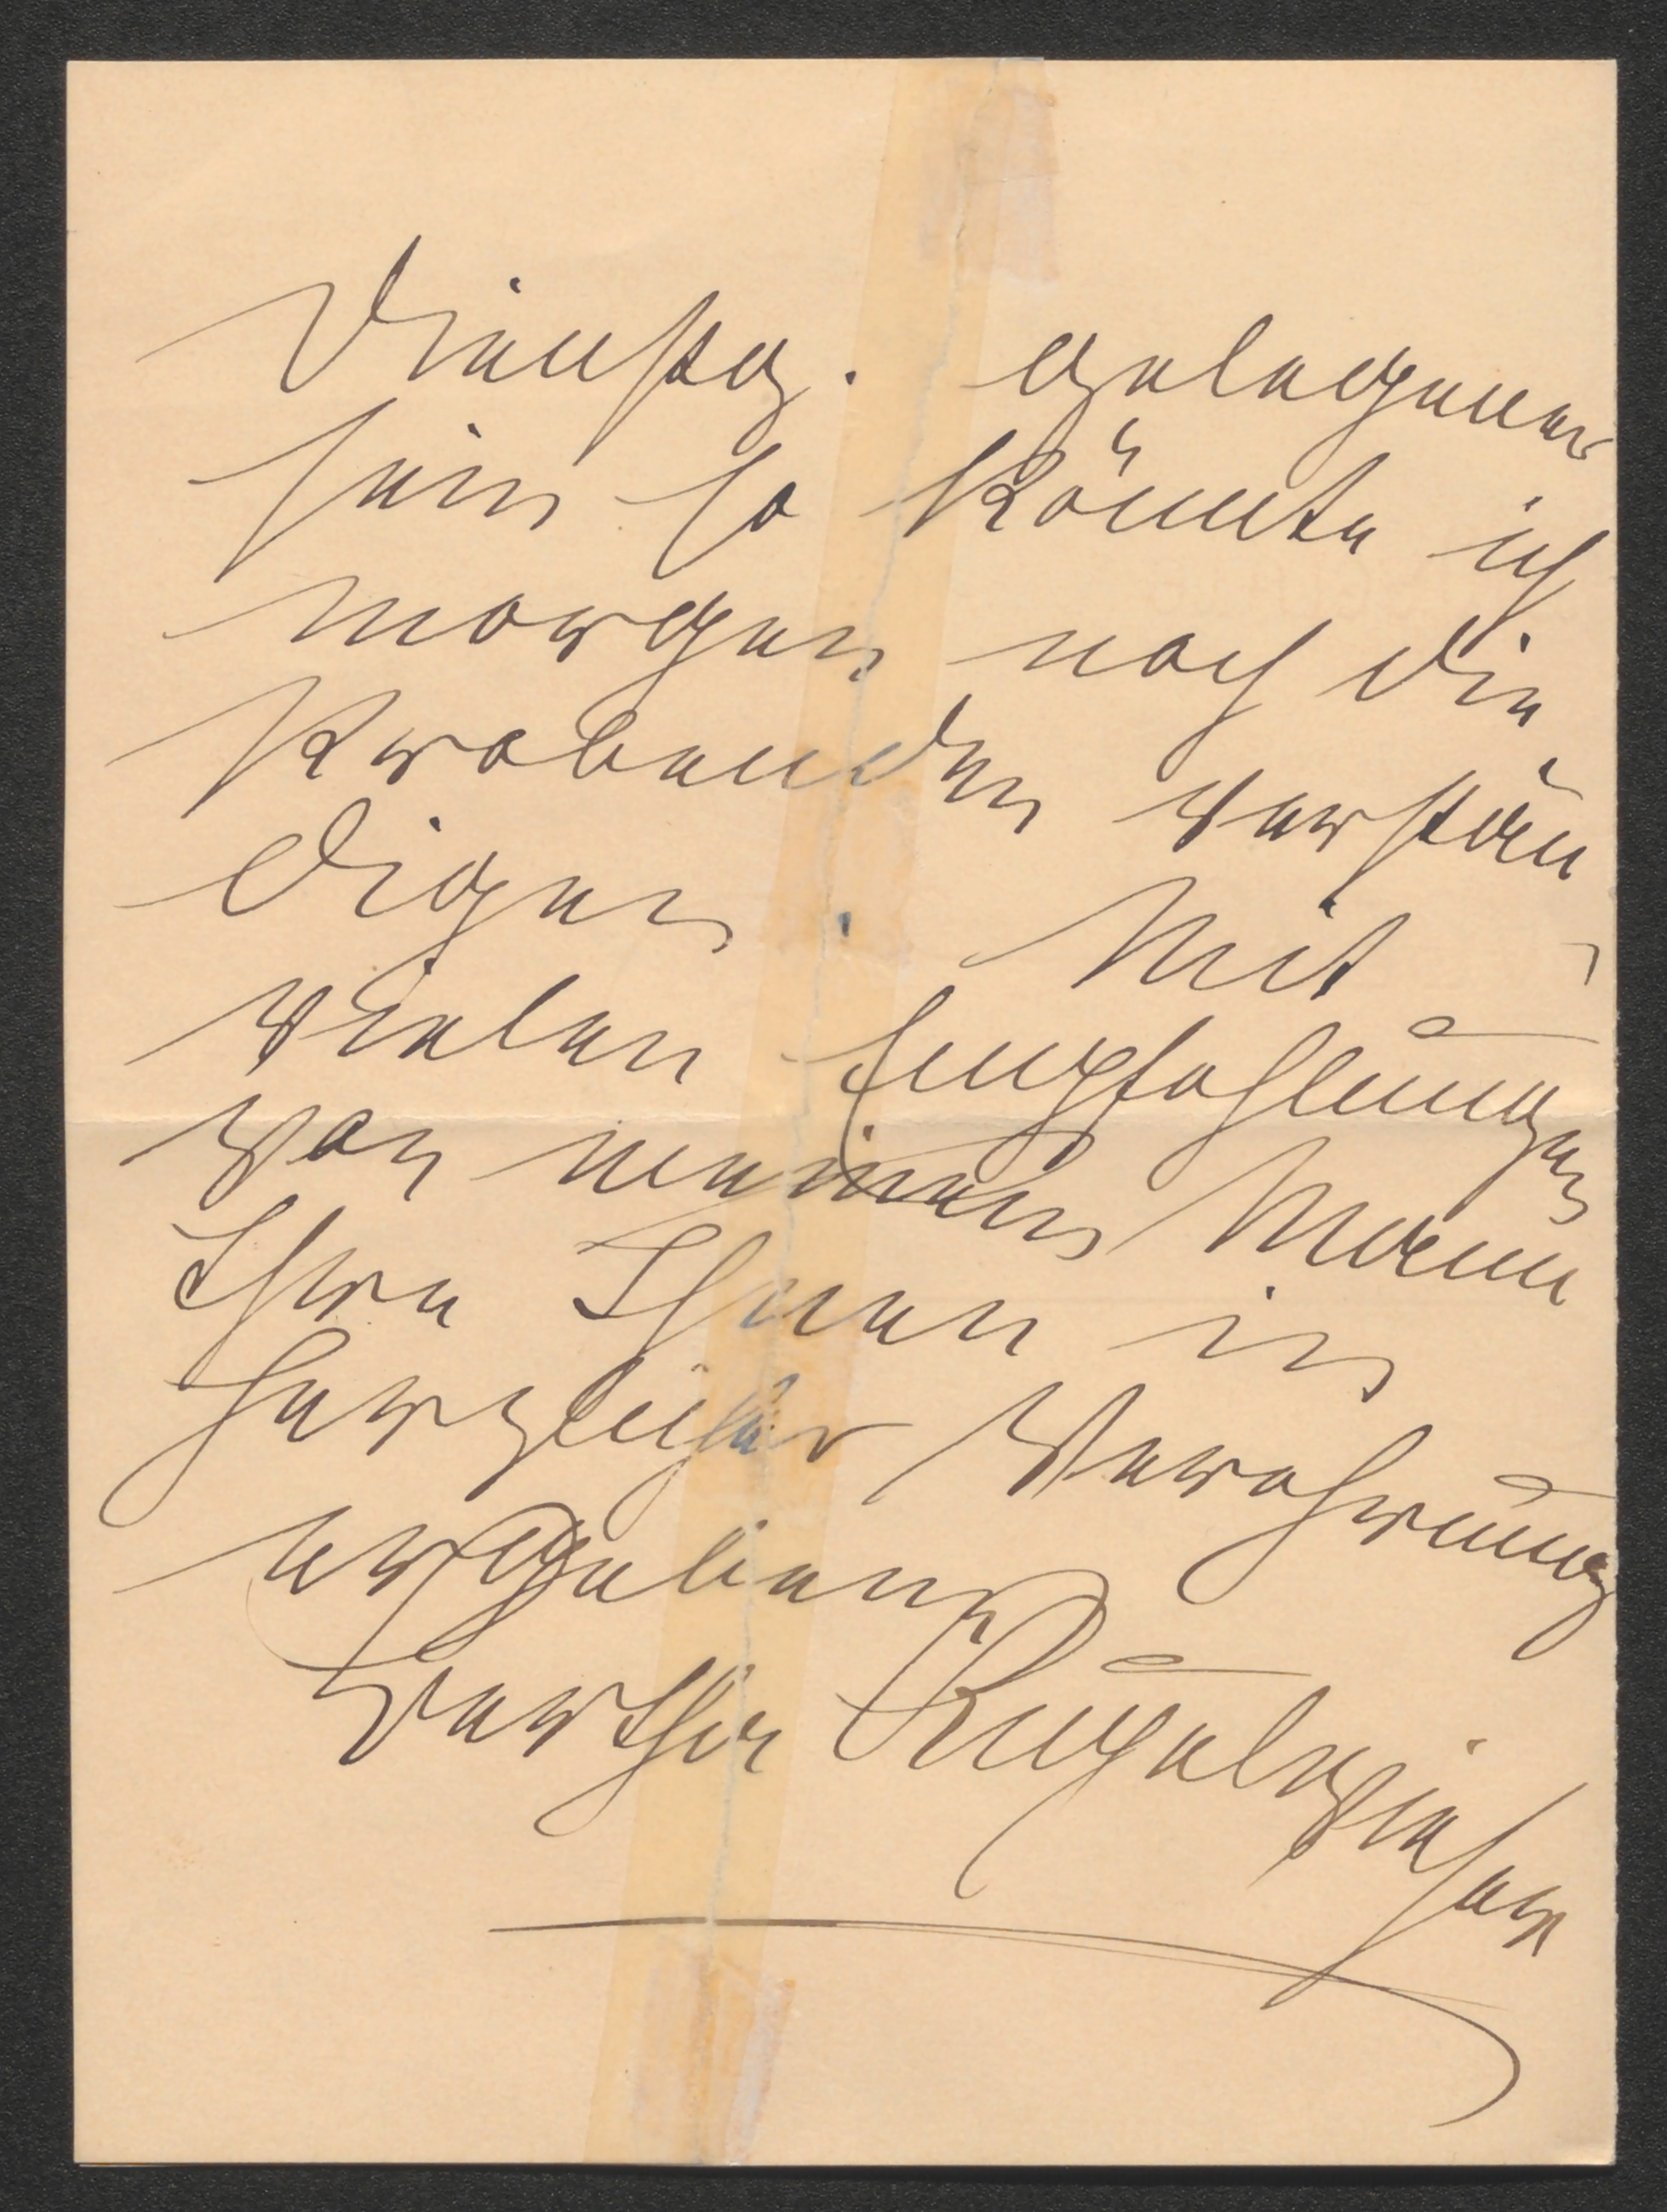 Dienstag. gelegener
sein so könnte ich
morgen noch die
verstän
digen. Mit
vielen Empfehlungen
von meinem Mann
Ihre Ihnen in
herzlicher Verehrung
ergebene
Bertha Kupelwieser